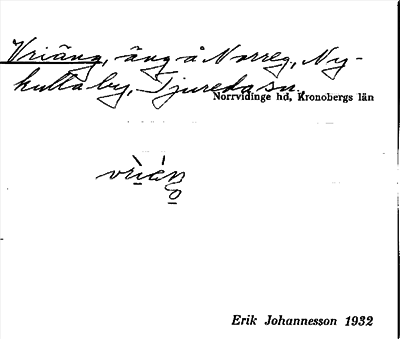 Vriäng, äng å Norreg, Ny-
kulla by, Tjureda sn.
Norrvidinge hd, Kronobergs län
Erik Johannesson 1932